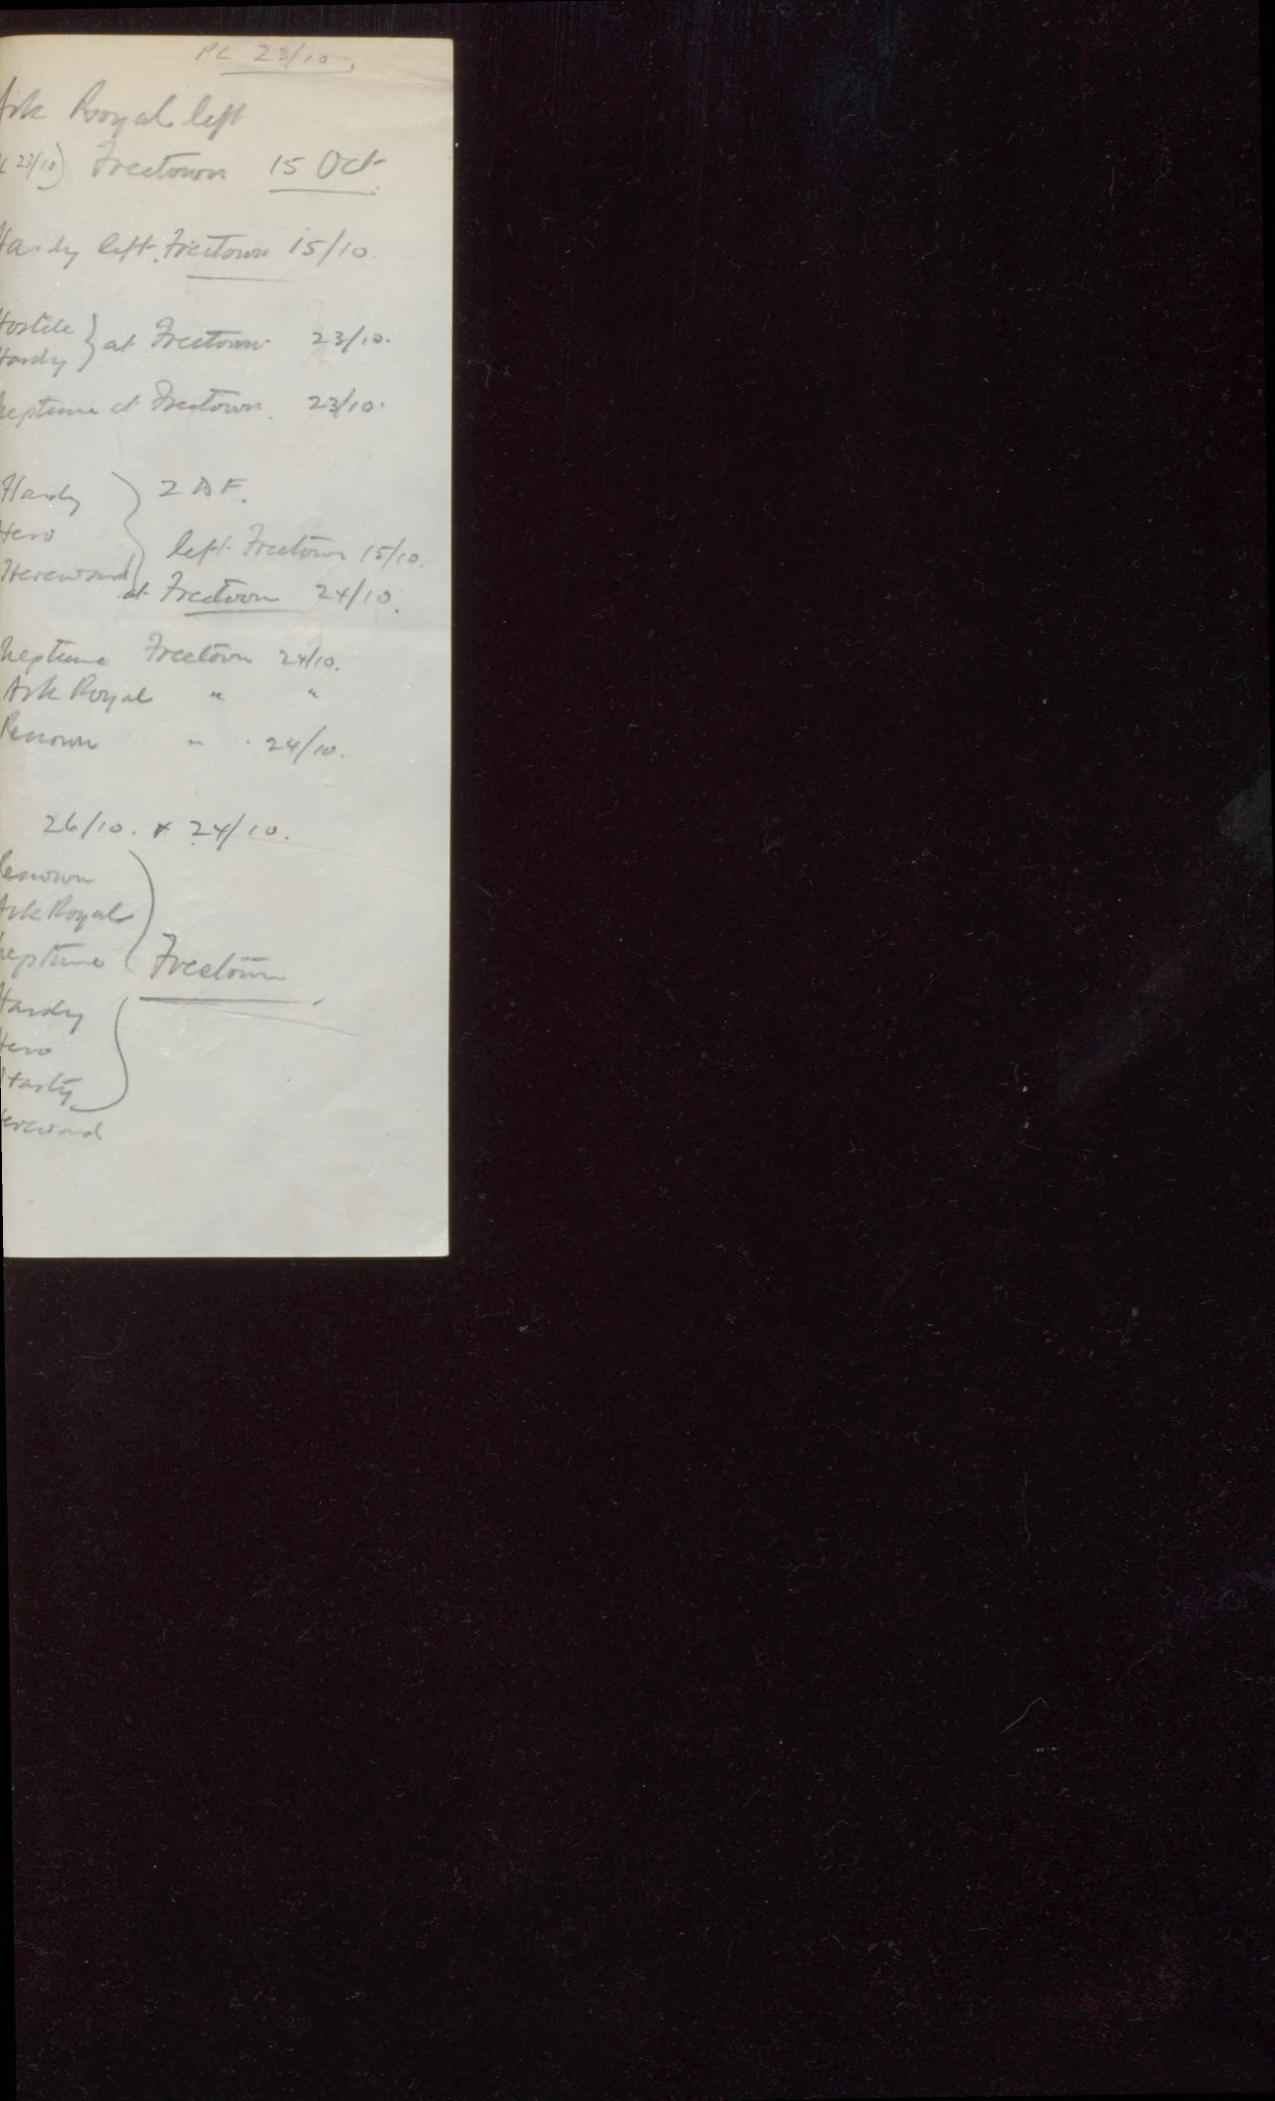 PL 23/10
Ark Royal left
(PL 23/10) Freetown 15 Oct.
Hardy left Freetown 15/10.
Hostile
Hardy } at Freetown 23/10.
Neptune at Freetown. 23/10.
Hardy } 2 DF.
Hero
left Freetown 15/10.
Hereward
at Freetown 24/10.
Neptune Freetown 24/10.
Ark Royal " "
Renown " 24/10.
26/10. & 24/10.
Renown
Ark Royal
Neptune
Freetown
Hardy
Hero
Hasty
Hereward